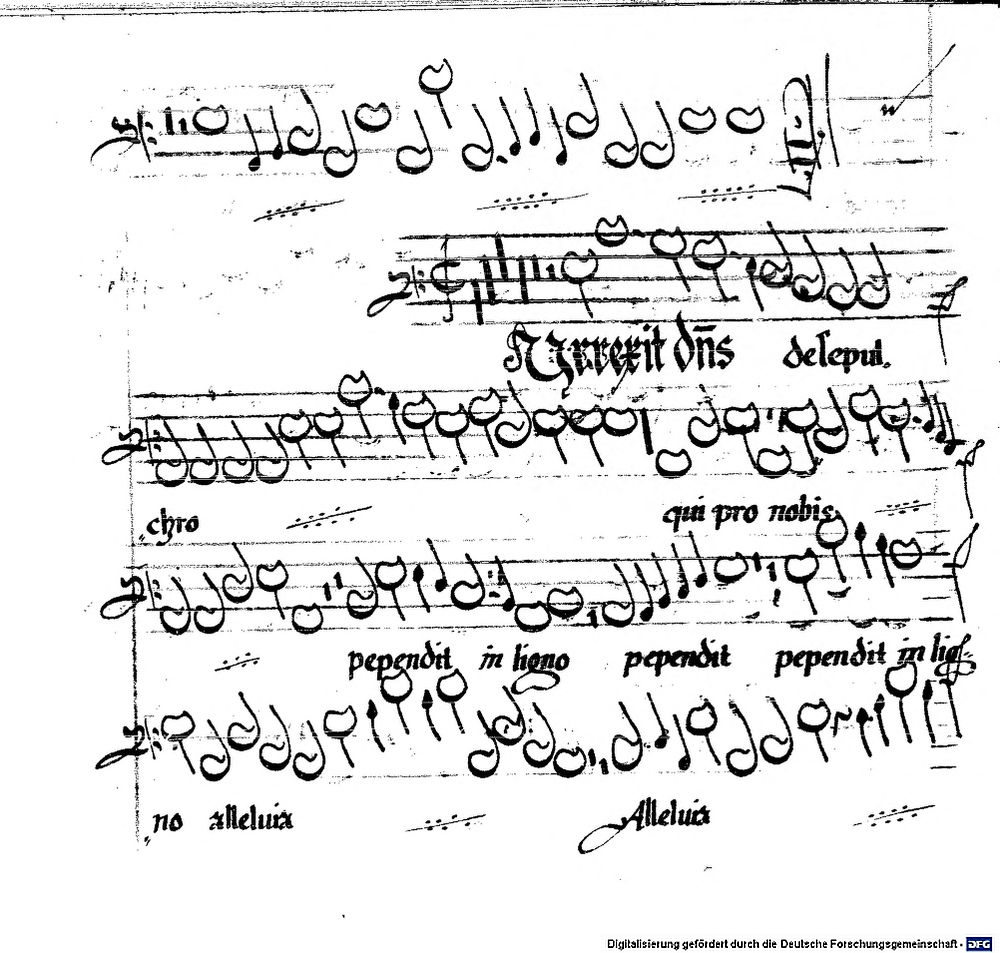 Surrexit dñs de sepul.
chro qui pro nobis
pependit in ligno pependit pependit in lig
no alleluia Alleluia
Digitalisierung gefördert durch die Deutsche Forschungsgemeinschaft - DFG